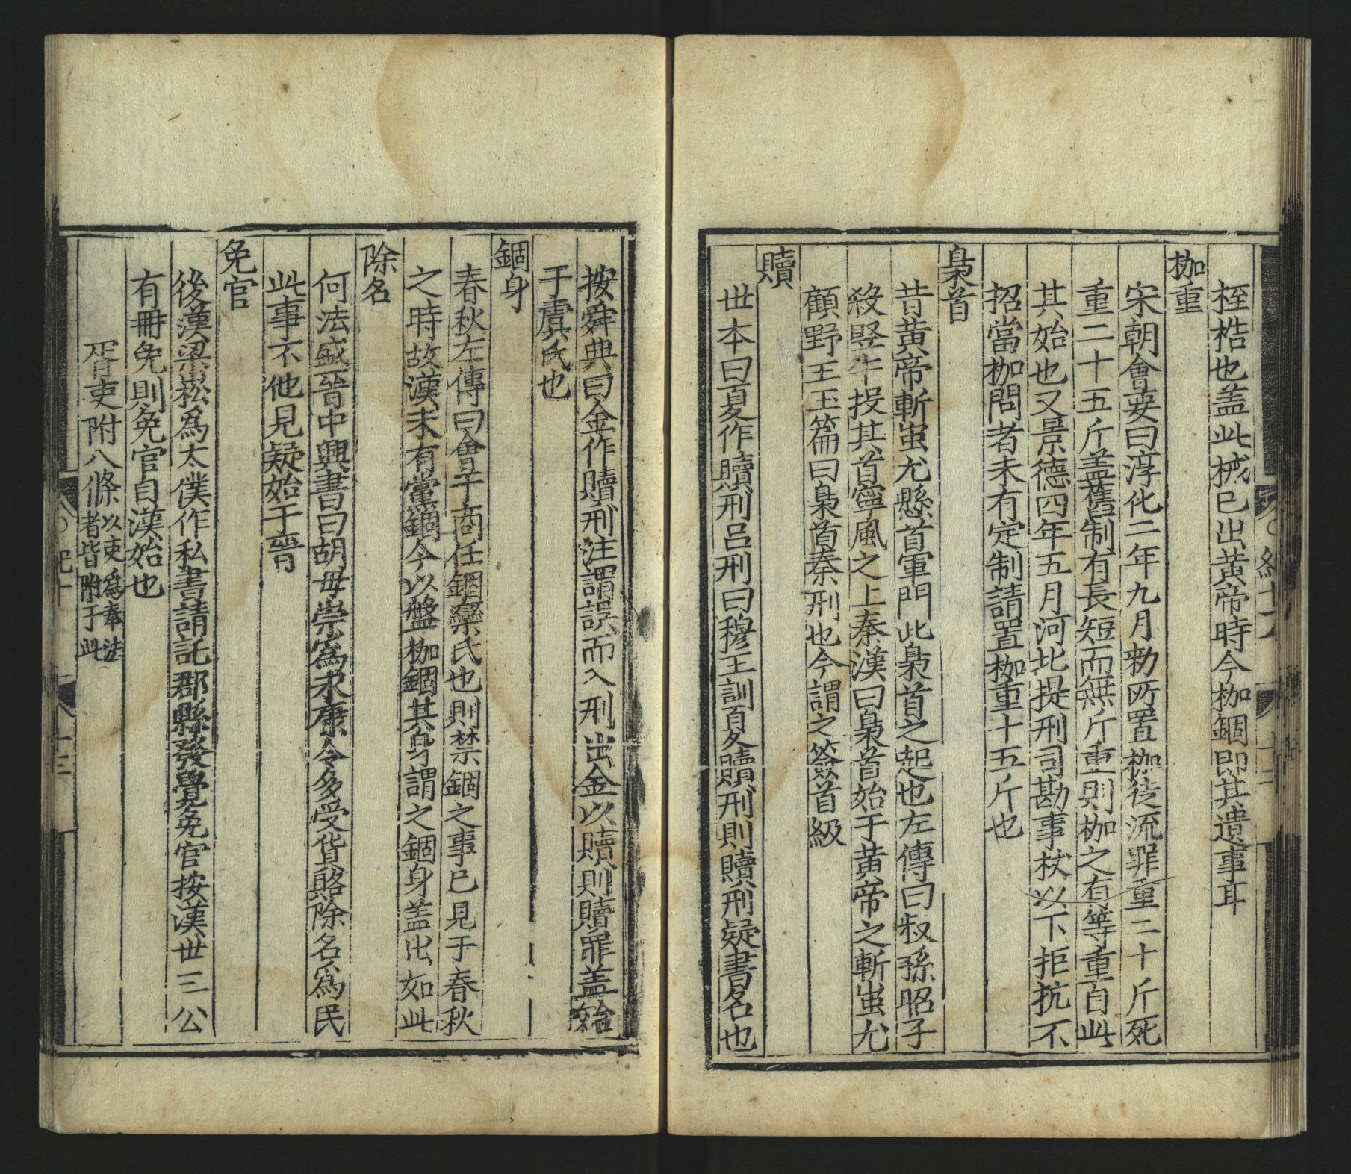 桎梏也盖此械已出黄帝時今枷錮即其遺事耳
枷重
宋朝會要曰淳化二年九月勑所置枷徒流罪重二十斤死
重二十五斤盖舊制有長短而無斤重則枷之有等重自此
其始也又景德四年五月河北提刑司勘事杖以下拒抗不
招當枷問者未有定制請置枷重十五斤也
梟首
昔黄帝斬蚩尤懸首軍門此梟首之起也左傳曰叔孫昭子
殺竪牛投其首寧風之上秦漢曰梟首始于黄帝之斬蚩尤
顧野王玉篇曰梟首秦刑也今謂之簽首級
贖
世本曰夏作贖刑吕刑曰穆王訓夏贖刑則贖刑疑書名也
按舜典曰金作贖刑注謂誤而入刑出金以贖則贖罪盖始
于虞氏也
錮身
春秋左傳曰會于商任錮欒氏也則禁錮之事已見于春秋
之時故漢末有黨錮今以盤枷錮其身謂之錮身盖出如此
除名
何法盛晉中興書曰胡毋崇為永康令多受貨賂除名為民
此事不他見疑始于晉
免官
後漢梁松為太僕作私書請託郡縣發覺免官按漢世三公
有冊免則免官自漢始也
胥吏附八條以吏為奉法
者皆附于此